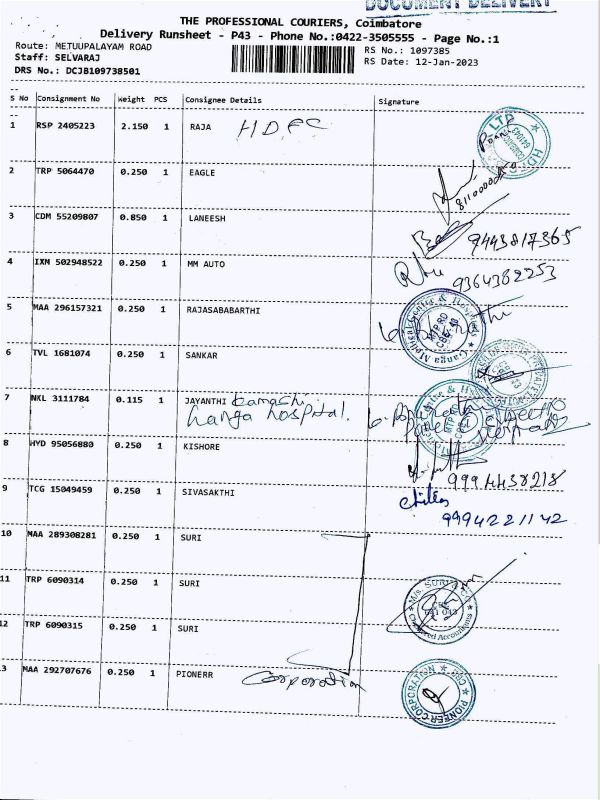 DOCUMENT DELIVERY
THE PROFESSIONAL COURIERS, Coimbatore
Delivery Runsheet - P43 - Phone No.:0422-3505555 - Page No.:1
Route: METUUPALAYAM ROAD
RS No.: 1097385
Staff: SELVARAJ
RS Date: 12-Jan-2023
DRS No.: DCJB109738501
S No Consignment No Weight PCS Consignee Details Signature
1 RSP 2405223 2.150 1 RAJA HDFC
2 TRP 5064470 0.250 1 EAGLE
3 CDM 55209807 0.850 1 LANEESH
9443817365
4 IXM 502948522 0.250 1 MM AUTO
9364362253
5 MAA 296157321 0.250 1 RAJASABABARTHI
6 TVL 1681074 0.250 1 SANKAR
7 NKL 3111784 0.115 1 JAYANTHI
Ganga hospital.
8 HYD 95056880 0.250 1 KISHORE
9994438218
9 TCG 15049459 0.250 1 SIVASAKTHI
9994221142
10 MAA 289308281 0.250 1 SURI
11 TRP 6090314 0.250 1 SURI
M/s. SURI & CO
Chartered Accountants
12 TRP 6090315 0.250 1 SURI
13 MAA 292707676 0.250 1 PIONERR Corporation
PIONEER CORPORATION